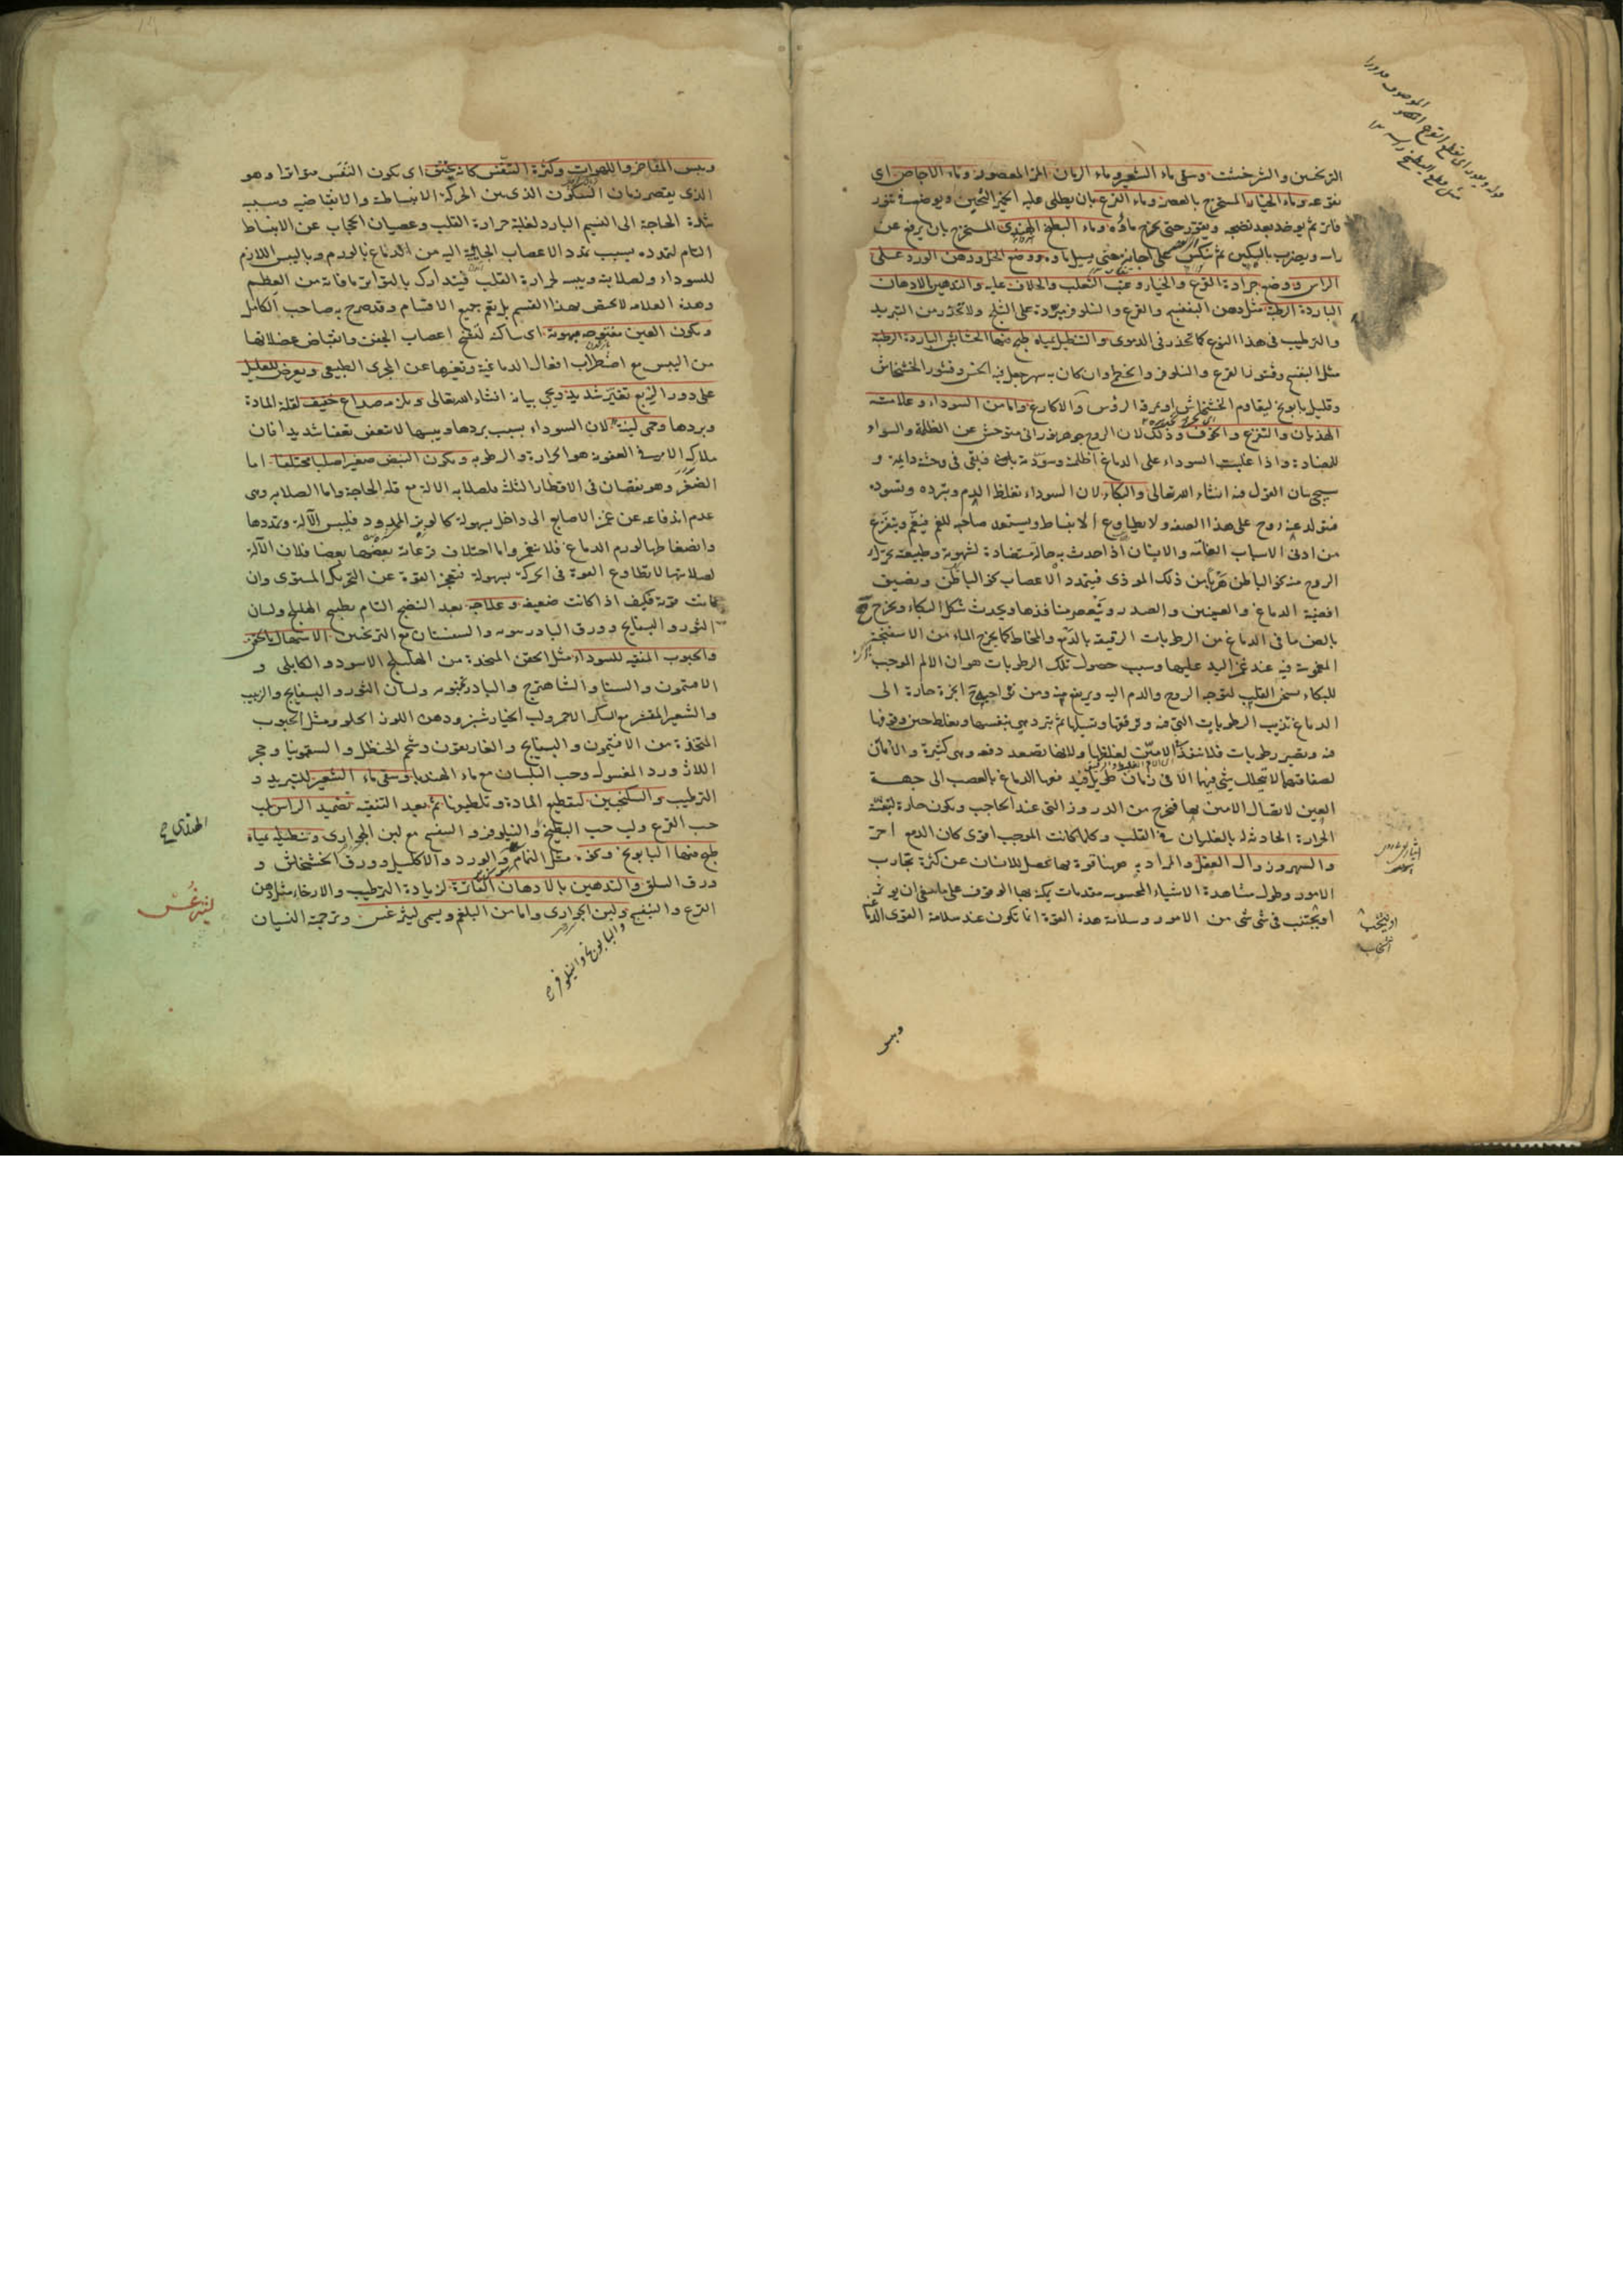 الترنجبين والشيرخشت وسقى ماء الشعير وماء الرمان المز المعصور وماء الاجاص اى
نقوعه وماء الخيار المستخرج بالعصر وماء القرع بان يطلى عليه الخمير الثخين ويوضع فى تنور
فاتر ثم يوخذ بعد نضجه ويقور حتى يخرج ماؤه وماء البطيخ الهندى المستخرج بان يرفع عن
راسه ويضرب بالسكين ثم ينكس على اجانة حتى يسيل ماؤه ووضع الخل ودهن الورد على
الراس ووضع جرادة القرع والخيار وعنب الثعلب والخلاف عليه والتدهين بالادهان
الباردة الرطبة مثل دهن البنفسج والقرع والنيلوفر مبردة على الثلج ولا تحذر من التبريد
والترطيب فى هذا النوع كما تحذر فى الدموى والتنطيل بمياه طبخ فيها الحشائش الباردة الرطبة
مثل البنفسج وقشور القرع والنيلوفر والخطمى وان كان به سهر جعل فيه الخس وقشور الخشخاش
وقليل بابونج ليقاوم الخشخاش او مرقة الرؤس والاكارع واما من السوداء وعلامته
الهذيان والتفزع والخوف وذلك لان الروح جوهر نورانى متوحش عن الظلمة والسواد
للمضادة واذا غلبت السوداء على الدماغ اظلمته وسودته فبقى فى وحشة دايمة و
سيجئ بيان القول فيه انشاء الله تعالى والبكاء لان السوداء تغلظ الدم وتبرده وتسوده
فتولد عنه روح على هذا الصفة ولا يطاوع الانبساط ويستعد صاحبه للغم فيغم ويتفزع
من ادنى الاسباب الغامة والانسان اذا حدث به حالة مضادة لشهوته وطبيعته تحرك
الروح منه نحو الباطن هربا من ذلك الموذى فيتمدد الاعصاب نحو الباطن ويضيق
افضية الدماغ والعينين والصدر وينعصر منافذها ويحدث شكل البكاء ويخرج
بالعصر ما فى الدماغ من الرطوبات الرقيقة بالدمع والمخاط كما يخرج الماء من الاسفنجة
المغموسة فيه عند غمز اليد عليها وسبب حصول تلك الرطوبات هو ان الالم الموجب
للبكاء يسخن القلب لتوجه الروح والدم اليه ويرتفع منه ومن نواحيه ابخرة حارة الى
الدماغ تذيب الرطوبات التى فيه وترققها وتسيلها ثم تبرد هى بنفسها وتغلظ حين وقوفها
فيه وتصير رطوبات فلا تنفذ الامين لغلظها ولانها تصعد دفعة وهى كثيرة والامان
لصفاقتهما لا يتحلل شئ فيها الا فى زمان طويل فيدفعها الدماغ بالعصب الى جهة
العين لاتصال الامين بها فتخرج من الدروز التى عند الحاجب ويكون حارة لبقية
الحرارة الحادثة له بالغليان فى القلب وكلما كانت الموجب اقوى كان الدمع احر
والسهر وزوال العقل والمراد به ههنا قوة بها تحصل للانسان عن كثرة تجارب
الامور وطول مشاهدة الاشياء المحسوسة مقدمات يمكنه بها الوقوف على ما ينبغى ان يوثر
او يجتنب فى شئ شئ من الامور وسلامة هذه القوة انما تكون عند سلامة القوى الدماغية
ويبس
ويبس المفاخر واللهوات وكثرة التنفس كانه يختنق اى يكون النفس متواترا وهو
الذى يقصر زمان السكون الذى بين الحركة الانبساطية والانقباضية وسببه
شدة الحاجة الى النسيم البارد لغلبة حرارة القلب وعصيان الحجاب عن الانبساط
التام لتمدده بسبب تمدد الاعصاب الجائية اليه من الدماغ بالورم وباليبس اللازم
للسوداء ولصلابته ويبسه لحرارة القلب فيتدارك بالتواتر ما فاته من العظم
وهذه العلامة لا تختص بهذا القسم بل تعم جميع الاقسام وقد صرح به صاحب الكامل
ويكون العين مفتوحة مبهوتة اى ساكنة لتشنج اعصاب الجفن وانقباض عضلاتها
من اليبس مع اضطراب افعال الدماغية وتغيرها عن المجرى الطبيعى ويعرض للعليل
على دور الربع تغير شديد ويجئ بيانه انشاء الله تعالى ويلزمه صداع خفيف لقلة المادة
وبردها وحمى لينة لان السوداء بسبب بردها ويبسها لا تتعفن تعفنا شديدا فان
ملاك الامر فى العفونة هو الحرارة والرطوبة ويكون النبض صغيرا صلبا مختلفا اما
الصغر وهو نقصان فى الاقطار الثلثة فلصلابة الآلة مع قلة الحاجة واما الصلابة وهى
عدم اندفاعه عن غمز الاصابع الى داخل بسهولة كالوتر الممدود فليبس الآلة وتمددها
وانضغاطها لورم الدماغ فلا ينغمز واما اختلاف قرعاته بعضها بعضا فلان الآلة
لصلابتها لا تطاوع القوة فى الحركة بسهولة فتعجز القوة عن التحريك المستوى وان
كانت قوية فكيف اذا كانت ضعيفة وعلاجه بعد النضج التام بطبيخ الهليلج ولسان
الثور والبسفايج وورق البادرنبويه والسفستان مع الترنجبين الاستسهال بالحقن
والحبوب المنقية للسوداء مثل الحقن المتخذة من الهليلج الاسود والكابلى و
الافتيمون والسنا والشاهترج والبادرنجبويه ولسان الثور والبسفايج والزبيب
والشعير المقشر مع السكر الاحمر ولب الخيارشنبر ودهن اللوز الحلو ومثل الحبوب
المتخذة من الافتيمون والبسفايج والغاريقون وشحم الحنظل والسقمونيا وحجر
اللازورد المغسول وحب البلسان مع ماء الهندبا وسقى ماء الشعير للتبريد و
الترطيب والسكنجبين لتقطيع المادة وتلطيفها ثم بعد التنقية تضميد الراس بلب
حب القرع ولب حب البطيخ والنيلوفر والبنفسج مع لبن الجوارى وتنطيله بمياه
طبخ فيها البابونج ونحوه مثل النمام والورد والاكليل وورق الخشخاش و
ورق السلق والتدهين بالادهان الفاترة لزيادة الترطيب والارخاء مثل دهن
القرع والبنفسج ولبن الجوارى واما من البلغم ويسمى ليثرغس وترجمته النسيان
والبابونج والنيلوفر
الهندى
ليثرغس